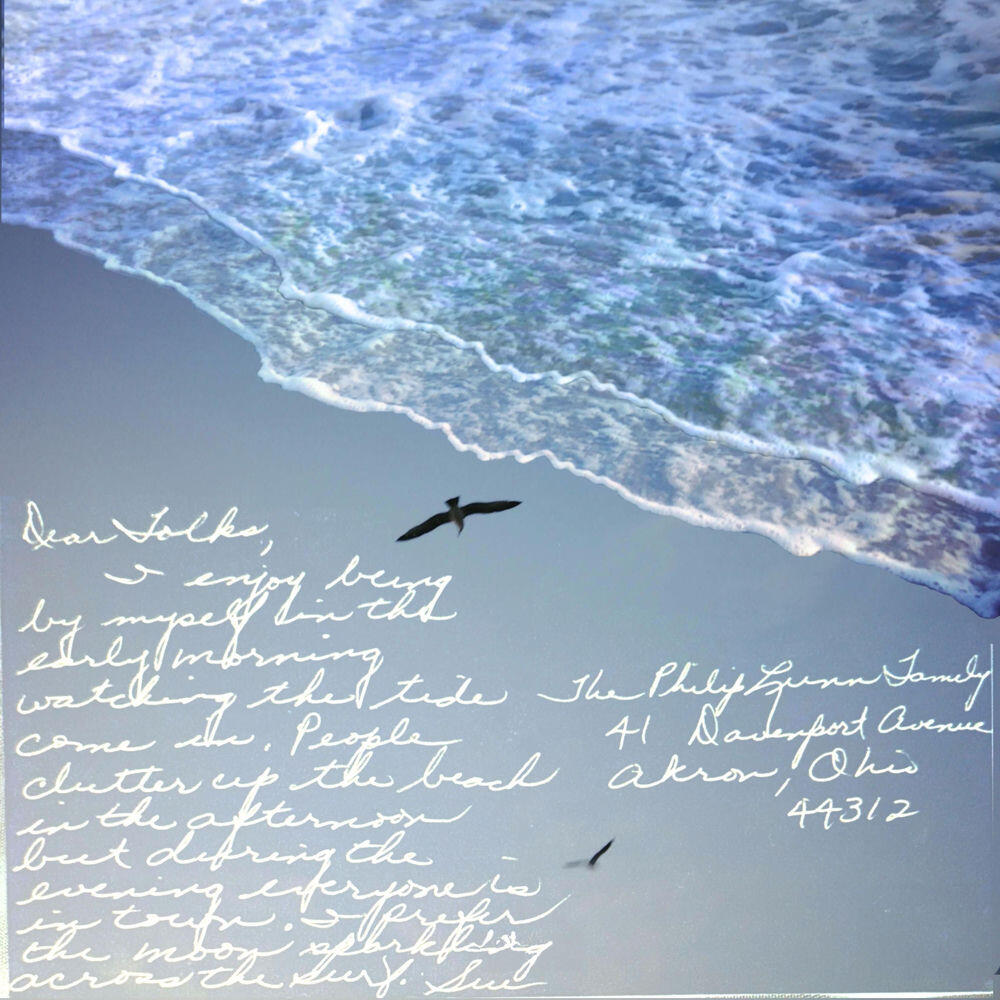 Dear Folks,
I enjoy being
by myself in the
early morning
watching the tide
come in. People
clutter up the beach
in the afternoon
but during the
evening everyone is
in town. I prefer
the moon sparkling
across the surf. Sue
The Philip Lunn Family
41 Davenport Avenue
Akron, Ohio
44312